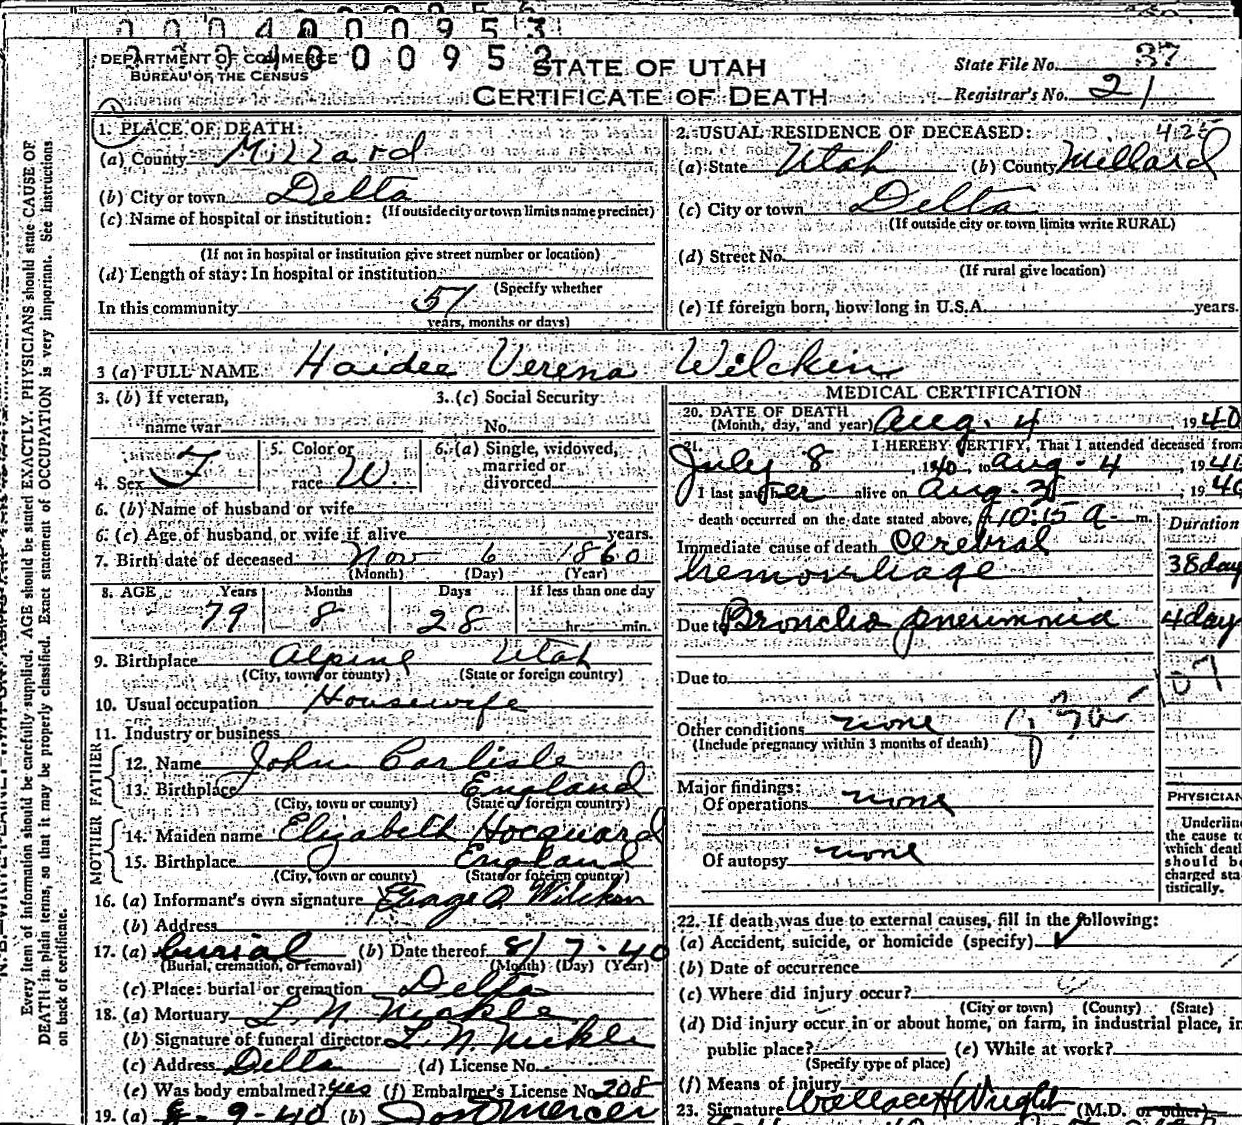 0 0 0 4 0 0 0 9 5 3
0 0 0 4 0 0 0 9 5 2
DEPARTMENT OF COMMERCE
BUREAU OF THE CENSUS
STATE OF UTAH
CERTIFICATE OF DEATH
State File No. 37
Registrar's No. 21
Every item of information should be carefully supplied. AGE should be stated EXACTLY. PHYSICIANS should state CAUSE OF
DEATH in plain terms, so that it may be properly classified. Exact statement of OCCUPATION is very important. See instructions
on back of certificate.
1. PLACE OF DEATH:
(a) County Millard
(b) City or town Delta
(If outside city or town limits name precinct)
(c) Name of hospital or institution:
(If not in hospital or institution give street number or location)
(d) Length of stay: In hospital or institution
(Specify whether
In this community 51
years, months or days)
2. USUAL RESIDENCE OF DECEASED: 425
(a) State Utah (b) County Millard
(c) City or town Delta
(If outside city or town limits write RURAL)
(d) Street No.
(If rural give location)
(e) If foreign born, how long in U.S.A. years.
3 (a) FULL NAME Haidee Verena Wilcken
3. (b) If veteran,
name war
3. (c) Social Security
No.
4. Sex F
5. Color or
race W.
6. (a) Single, widowed,
married or
divorced
6. (b) Name of husband or wife
6. (c) Age of husband or wife if alive years.
7. Birth date of deceased Nov 6 1860
(Month) (Day) (Year)
8. AGE Years Months Days If less than one day
79 8 28 hr. min.
9. Birthplace Alpine Utah
(City, town or county) (State or foreign country)
10. Usual occupation Housewife
11. Industry or business
FATHER
12. Name John Carlisle
13. Birthplace England
(City, town or county) (State or foreign country)
MOTHER
14. Maiden name Elizabeth Hocquard
15. Birthplace England
(City, town or county) (State or foreign country)
16. (a) Informant's own signature George A. Wilcken
(b) Address
17. (a) burial (b) Date thereof 8/7-40
(Burial, cremation, or removal) (Month) (Day) (Year)
(c) Place: burial or cremation Delta
18. (a) Mortuary L. N. Nickle
(b) Signature of funeral director L N Nickle
(c) Address Delta (d) License No.
(e) Was body embalmed? yes (f) Embalmer's License No. 208
19. (a) 8-9-40 (b) Mercer
MEDICAL CERTIFICATION
20. DATE OF DEATH
(Month, day, and year) Aug. 4, 1940
21. I HEREBY CERTIFY, That I attended deceased from
July 8, 1940, to Aug-4, 1940
I last saw her alive on Aug. 3, 1940
death occurred on the date stated above, 10:15 A m.
Duration
Immediate cause of death Cerebral
hemorrhage 38 day
Due to Broncho pneumonia 4 day
Due to
Other conditions none
(Include pregnancy within 3 months of death)
Major findings:
Of operations none
Of autopsy none
PHYSICIAN
Underline
the cause to
which death
should be
charged sta-
tistically.
22. If death was due to external causes, fill in the following:
(a) Accident, suicide, or homicide (specify)
(b) Date of occurrence
(c) Where did injury occur?
(City or town) (County) (State)
(d) Did injury occur in or about home, on farm, in industrial place, in
public place? (e) While at work?
(Specify type of place)
(f) Means of injury
23. Signature Wallace H Wright (M.D. or other)